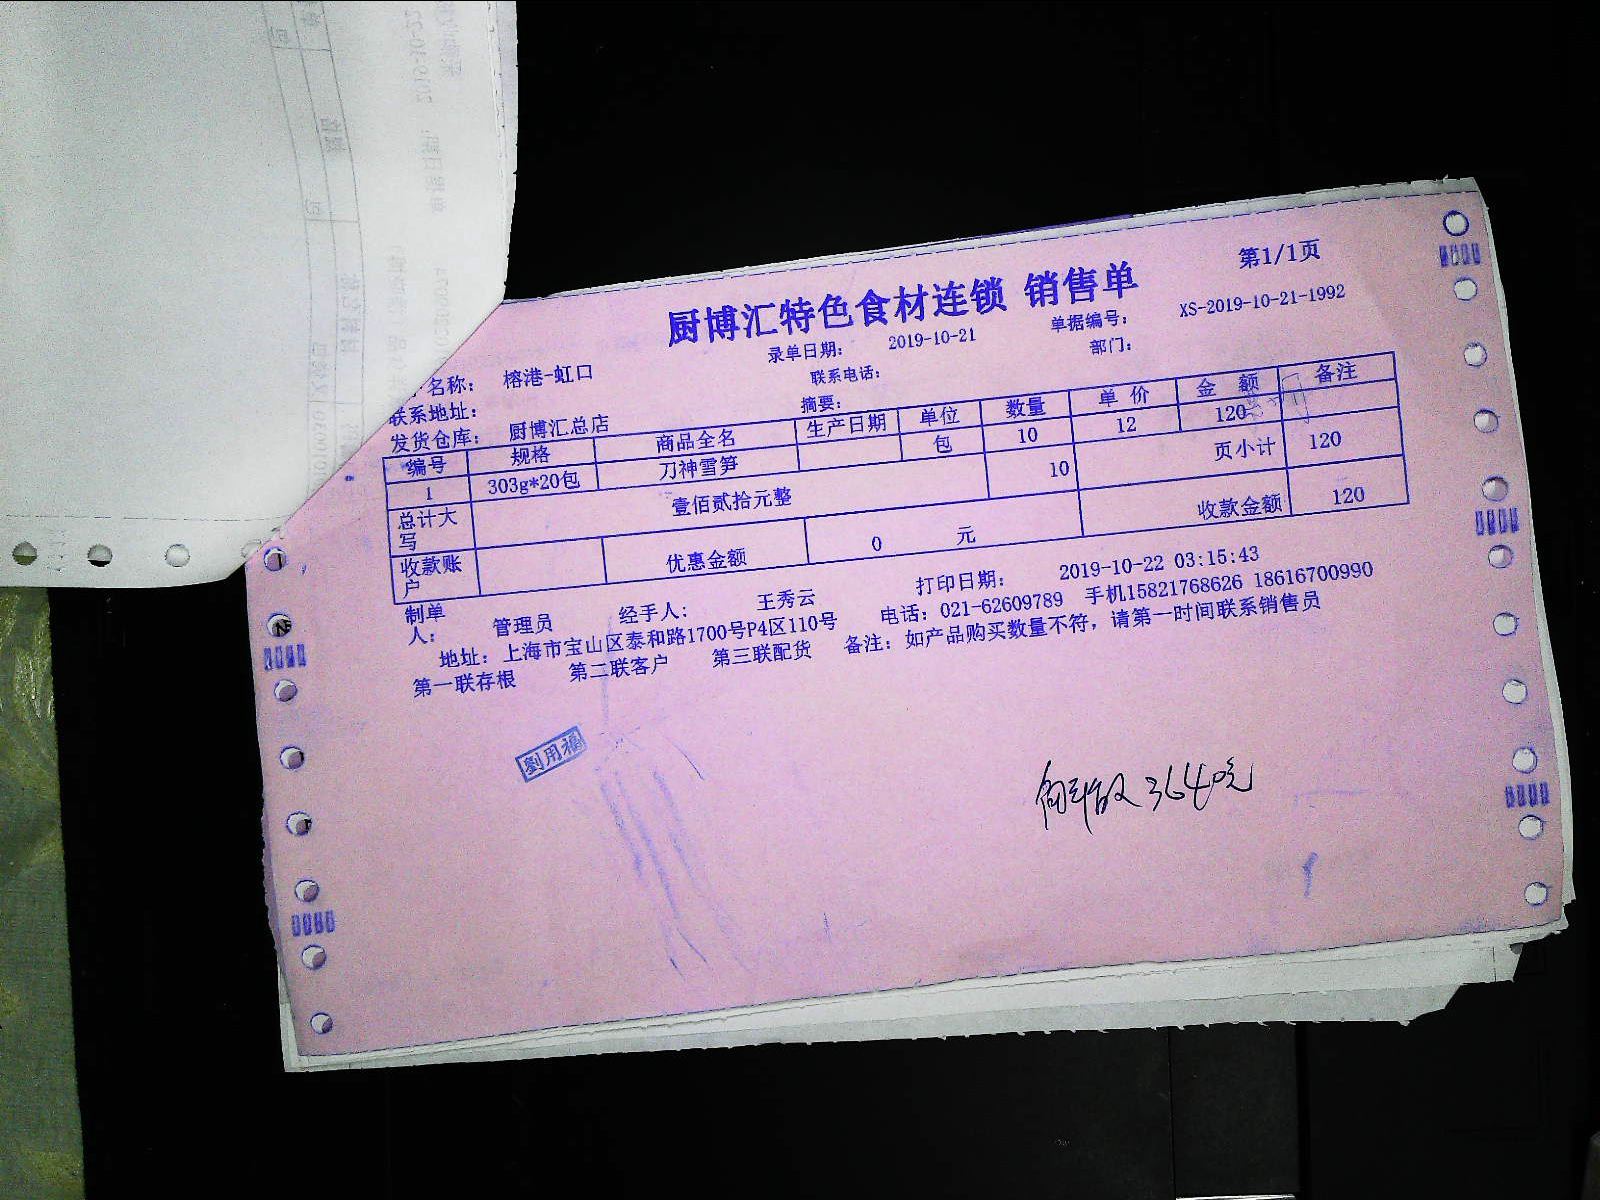 第1/1页
厨博汇特色食材连锁 销售单
录单日期: 2019-10-21 单据编号: XS-2019-10-21-1992
名称: 榕港-虹口 联系电话: 部门:
联系地址: 摘要:
发货仓库: 厨博汇总店
编号 规格 商品全名 生产日期 单位 数量 单 价 金 额 备注
1 303g*20包 刀神雪笋 包 10 12 120
总计大写 壹佰贰拾元整 10 页小计 120
收款账户 优惠金额 0 元 收款金额 120
制单人: 管理员 经手人: 王秀云 打印日期: 2019-10-22 03:15:43
地址: 上海市宝山区泰和路1700号P4区110号 电话: 021-62609789 手机15821768626 18616700990
第一联存根 第二联客户 第三联配货 备注: 如产品购买数量不符, 请第一时间联系销售员
劉用福
364元